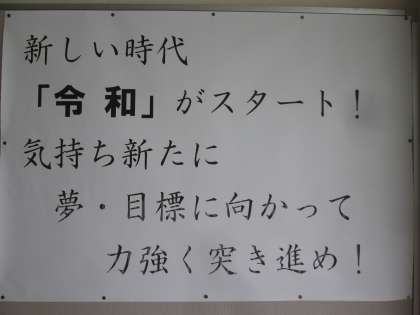 新しい時代
「令 和」がスタート！
気持ち新たに
夢・目標に向かって
力強く突き進め！